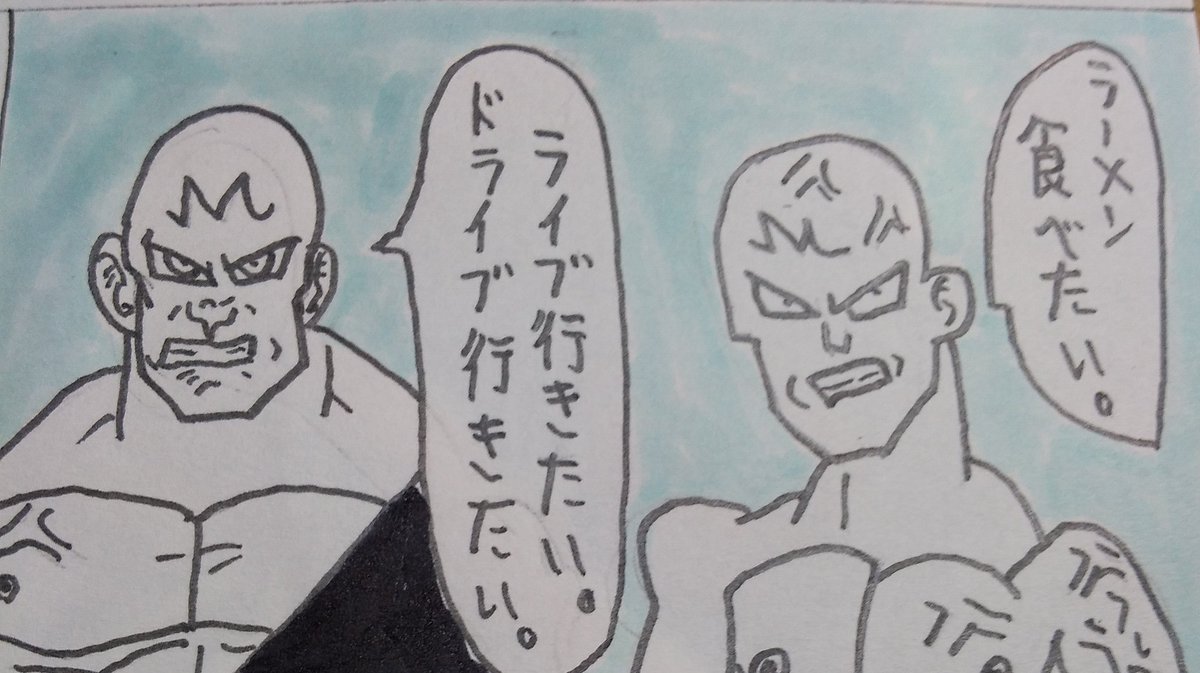 ラーメン
食べたい。
ライブ行きたい。
ドライブ行きたい。